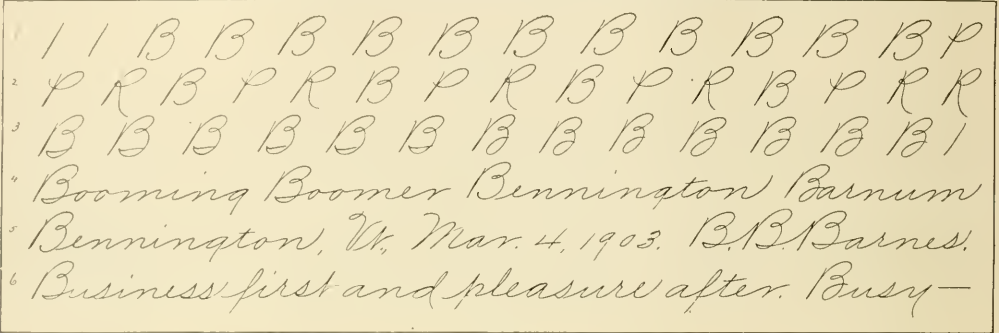 1 1 1 B B B B B B B B B B B P
2 P R B P R B P R B P R B P R R
3 B B B B B B B B B B B B B 1
4 Booming Boomer Bennington Barnum
5 Bennington, Vt., Mar. 4, 1903. B.B.Barnes.
6 Business first and pleasure after. Busy—